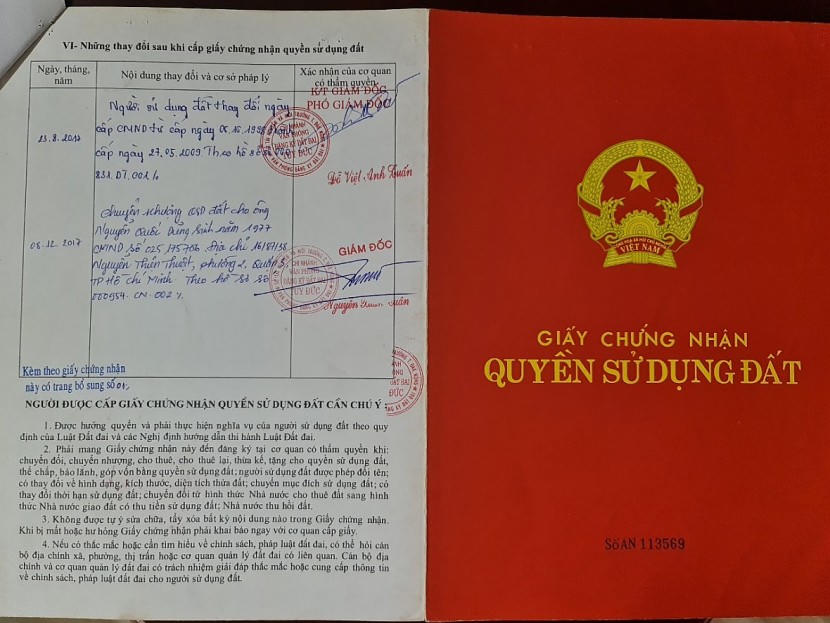 VI- Những thay đổi sau khi cấp giấy chứng nhận quyền sử dụng đất
Ngày, tháng, năm
Nội dung thay đổi và cơ sở pháp lý
Xác nhận của cơ quan có thẩm quyền
23.8.2017
Người sử dụng đất thay đổi ngày
cấp CMND từ cấp ngày 06.10.1998
cấp ngày 27.05.2009 Theo hồ sơ số
831.DT.001
K/T GIÁM ĐỐC
PHÓ GIÁM ĐỐC
CHI NHÁNH
VĂN PHÒNG
ĐĂNG KÝ ĐẤT ĐAI
TUY ĐỨC
Đỗ Việt Anh Tuấn
08.12.2017
Chuyển nhượng QSD đất cho ông
Nguyễn Quốc Dũng Sinh năm 1977
CMND số 025175706 Địa chỉ 161B7/38
Nguyễn Thiện Thuật, phường 2, Quận 3,
TP Hồ Chí Minh Theo hồ sơ số
000954. CN. 002
GIÁM ĐỐC
CHI NHÁNH
VĂN PHÒNG
ĐĂNG KÝ ĐẤT ĐAI
TUY ĐỨC
Nguyễn Tuấn
Kèm theo giấy chứng nhận
này có trang bổ sung số 01
NGƯỜI ĐƯỢC CẤP GIẤY CHỨNG NHẬN QUYỀN SỬ DỤNG ĐẤT CẦN CHÚ Ý :
1. Được hưởng quyền và phải thực hiện nghĩa vụ của người sử dụng đất theo quy
định của Luật Đất đai và các Nghị định hướng dẫn thi hành Luật Đất đai.
2. Phải mang Giấy chứng nhận này đến đăng ký tại cơ quan có thẩm quyền khi:
chuyển đổi, chuyển nhượng, cho thuê, cho thuê lại, thừa kế, tặng cho quyền sử dụng đất,
thế chấp, bảo lãnh, góp vốn bằng quyền sử dụng đất; người sử dụng đất được phép đổi tên;
có thay đổi về hình dạng, kích thước, diện tích thửa đất; chuyển mục đích sử dụng đất; có
thay đổi thời hạn sử dụng đất; chuyển đổi từ hình thức Nhà nước cho thuê đất sang hình
thức Nhà nước giao đất có thu tiền sử dụng đất; Nhà nước thu hồi đất.
3. Không được tự ý sửa chữa, tẩy xóa bất kỳ nội dung nào trong Giấy chứng nhận.
Khi bị mất hoặc hư hỏng Giấy chứng nhận phải khai báo ngay với cơ quan cấp giấy.
4. Nếu có thắc mắc hoặc cần tìm hiểu về chính sách, pháp luật đất đai, có thể hỏi cán
bộ địa chính xã, phường, thị trấn hoặc cơ quan quản lý đất đai có liên quan. Cán bộ địa
chính và cơ quan quản lý đất đai có trách nhiệm giải đáp thắc mắc hoặc cung cấp thông tin
về chính sách, pháp luật đất đai cho người sử dụng đất.
CỘNG HÒA XÃ HỘI CHỦ NGHĨA
VIỆT NAM
GIẤY CHỨNG NHẬN
QUYỀN SỬ DỤNG ĐẤT
Số AN 113569